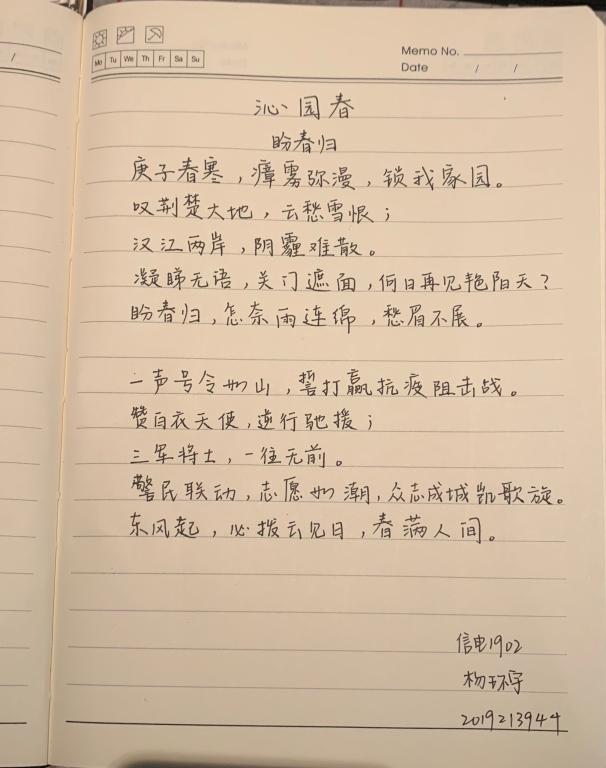 Mo Tu We Th Fr Sa Su
Memo No.
Date / /
沁园春
盼春归
庚子春寒，瘴雾弥漫，锁我家园。
叹荆楚大地，云愁雪恨；
汉江两岸，阴霾难散。
凝睇无语，关门遮面，何日再见艳阳天？
盼春归，怎奈雨连绵，愁眉不展。
一声号令如山，誓打赢抗疫阻击战。
赞白衣天使，逆行驰援；
三军将士，一往无前。
警民联动，志愿如潮，众志成城凯歌旋。
东风起，必拨云见日，春满人间。
信电1902
杨环宇
2019213944